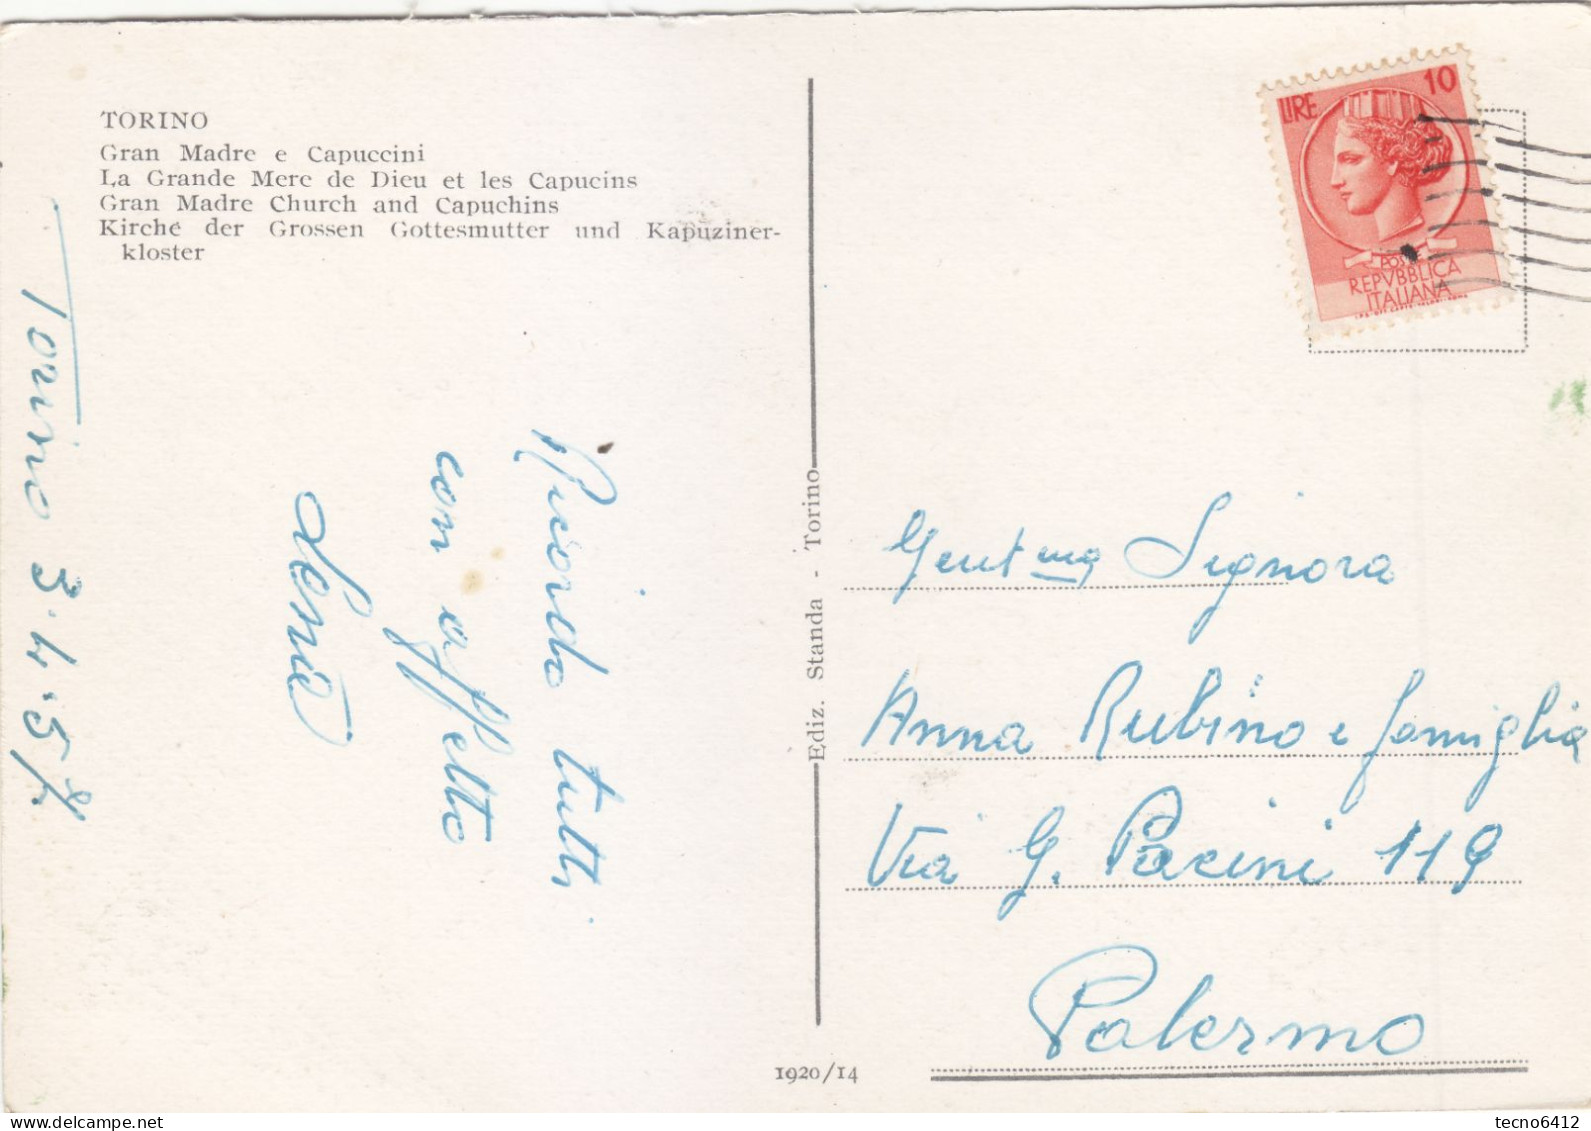 TORINO
Gran Madre e Capuccini
La Grande Mere de Dieu et les Capucins
Gran Madre Church and Capuchins
Kirche der Grossen Gottesmutter und Kapuziner-
kloster
Torino 3.4.57
Ricordo tutti
con affetto
Lena
Ediz. Standa - Torino
1920/14
LIRE 10
POSTE
REPVBBLICA
ITALIANA
Gent.ma Signora
Anna Rubino e famiglia
Via G. Pacini 119
Palermo
tecno6412